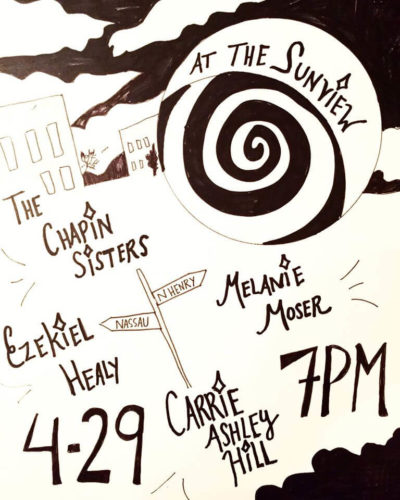 AT THE SUNVIEW
THE
CHAPIN
SISTERS
N HENRY
NASSAU
MELANIE
MOSER
EZEKIEL
HEALY
CARRIE
ASHLEY
HILL
4-29
7PM